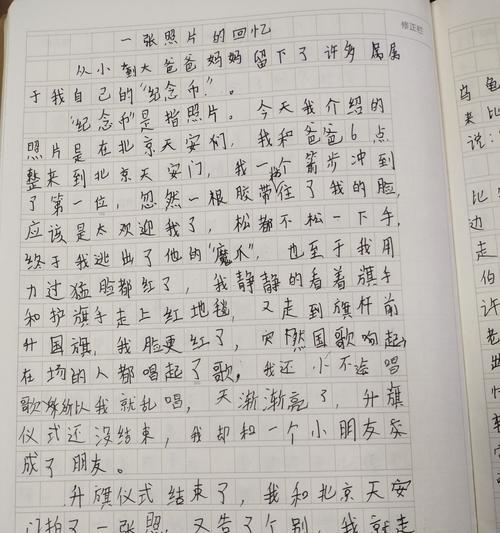 修正栏
一张照片的回忆
从小到大爸爸妈妈留下了许多属属
于我自己的“纪念币”。
“纪念币”是指照片。今天我介绍的
照片是在北京天安们,我和爸爸6点
整来到北京天安门,我一个箭步冲到
了第一位,忽然一根胶带拴住了我的脸,
应该是太欢迎我了,松都不松一下手,
终于我逃出了他的“魔爪”,也至于我用
力过猛脸都红了,我静静的看着旗手
和护旗手走上红地毯,又走到旗杆前
升国旗,我脸更红了,突然国歌响起,
在场的人都唱起了歌,我还小不会唱
歌所以我就乱唱,天渐渐亮了,升旗
仪式还没结束,我却和一个小朋友
成了朋友。
升旗仪式结束了,我和北京天安
门拍了一张照,又告了个别,我就走
乌龟
来比
说:
比
边
走
伯
许
老